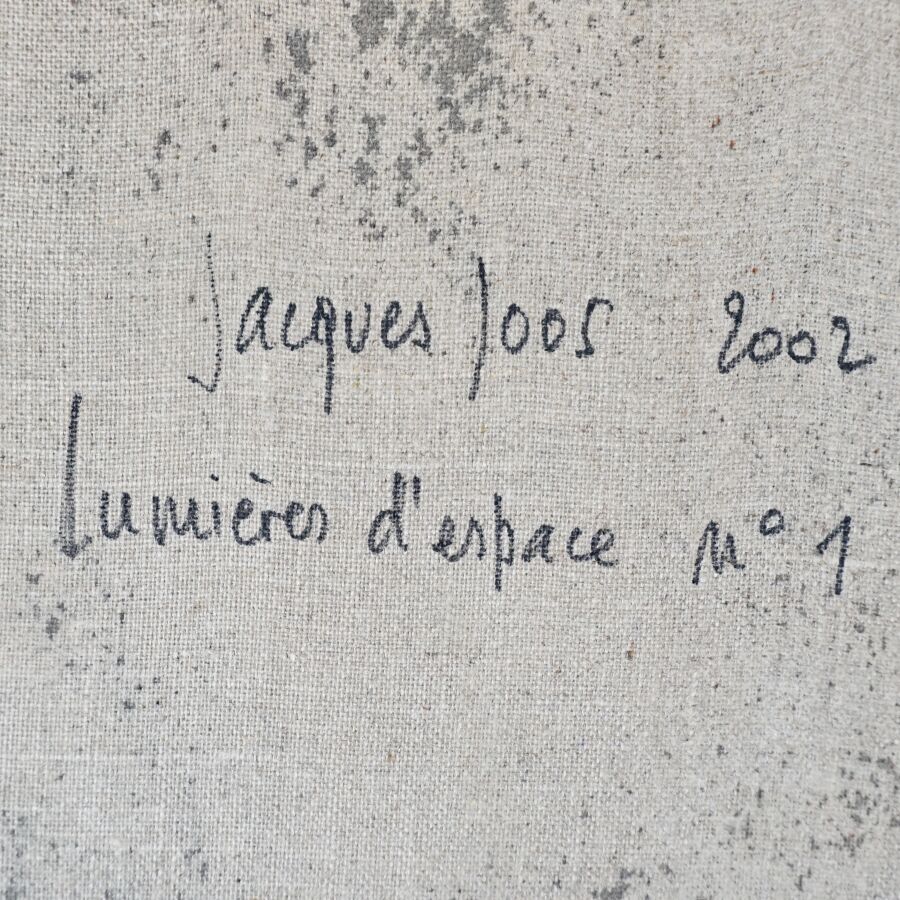 Jacques Joos 2002
Lumières d'espace n° 1